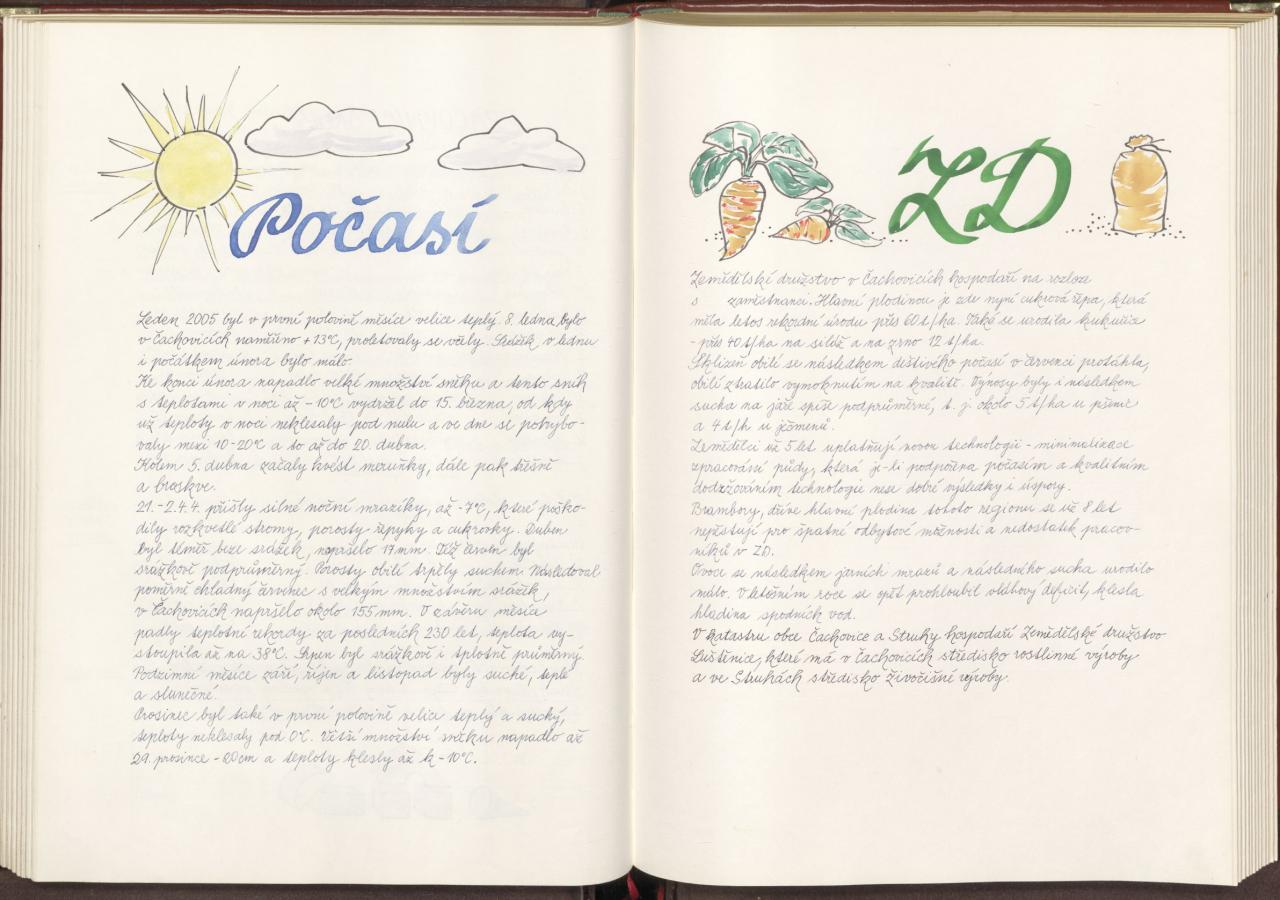 Počasí
Leden 2005 byl v první polovině měsíce velice teplý. 8. ledna bylo
v Čachovicích naměřeno +13°C, proletovaly se včely. Srážek v lednu
i počátkem února bylo málo.
Ke konci února napadlo velké množství sněhu a tento sníh
s teplotami v noci až -10°C vydržel do 15. března, od kdy
už teploty v noci neklesaly pod nulu a ve dne se pohybo-
valy mezi 10-20°C a to až do 20. dubna.
Kolem 5. dubna začaly kvést meruňky, dále pak třešně
a broskve.
21.-24.4. přišly silné noční mrazíky, až -7°C, které poško-
dily rozkvetlé stromy, porosty řepky a cukrovky. Duben
byl téměř beze srážek, napršelo 17 mm. Též červen byl
srážkově podprůměrný. Porosty obilí trpěly suchem. Následoval
poměrně chladný červenec s velkým množstvím srážek,
v Čachovicích napršelo okolo 155 mm. V závěru měsíce
padly teplotní rekordy za posledních 230 let, teplota vy-
stoupila až na 38°C. Srpen byl srážkově i teplotně průměrný.
Podzimní měsíce září, říjen a listopad byly suché, teplé
a slunečné.
Prosinec byl také v první polovině velice teplý a suchý,
teploty neklesaly pod 0°C. Větší množství sněhu napadlo až
29. prosince - 20cm a teploty klesly až k -10°C.
ZD
Zemědělské družstvo v Čachovicích hospodaří na rozloze
s zaměstnanci. Hlavní plodinou je zde nyní cukrová řepa, která
měla letos rekordní úrodu přes 60 t/ha. Také se urodila kukuřice
- přes 40 t/ha na siláž a na zrno 12 t/ha.
Sklizeň obilí se následkem deštivého počasí v červenci protáhla,
obilí ztratilo vymoknutím na kvalitě. Výnosy byly i následkem
sucha na jaře spíše podprůměrné, t. j. okolo 5 t/ha u pšenice
a 4 t/h u ječmenů.
Zemědělci už 5 let uplatňují novou technologii - minimalizace
zpracování půdy, která je-li podpořena počasím a kvalitním
dodržováním technologie nese dobré výsledky i úspory.
Brambory, dříve hlavní plodina tohoto regionu se už 8 let
nepěstují pro špatné odbytové možnosti a nedostatek pracov-
níků v ZD.
Ovoce se následkem jarních mrazů a následného sucha urodilo
málo. V letošním roce se opět prohloubil vláhový deficit, klesla
hladina spodních vod.
V katastru obce Čachovice a Struhy hospodaří Zemědělské družstvo
Luštěnice, které má v Čachovicích středisko rostlinné výroby
a ve Struhách středisko živočišné výroby.